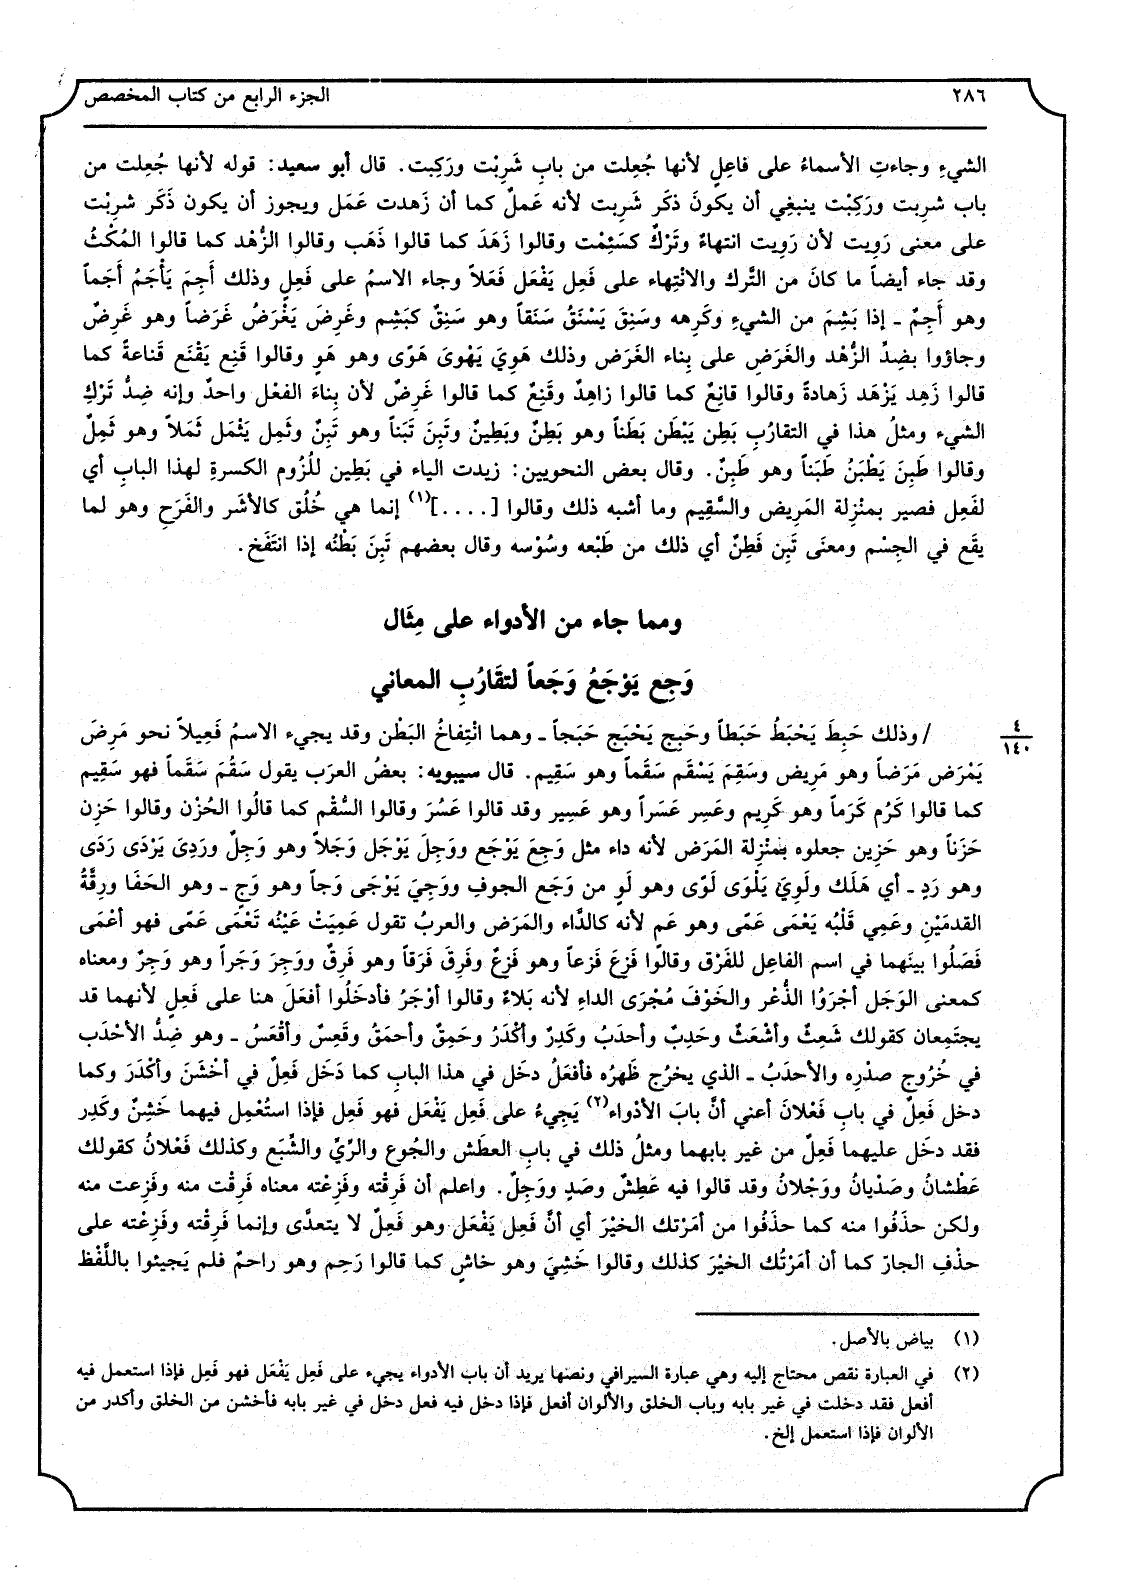 ٢٨٦
الجزء الرابع من كتاب المخصص
الشيءِ وجاءتِ الأسماءُ على فاعِلٍ لأنها جُعِلت من بابِ شَرِبْت ورَكِبت. قال أبو سعيد: قوله لأنها جُعِلت من
باب شربت ورَكِبْت ينبغِي أن يكونَ ذكَر شَرِبت لأنه عَملٌ كما أن زَهدت عَمَل ويجوز أن يكون ذَكَر شرِبْت
على معنى رَوِيت لأن رَوِيت انتهاءً وتَرْكٌ كسَئِمْت وقالوا زَهَدَ كما قالوا ذَهَب وقالوا الزُّهْد كما قالوا المُكْثُ
وقد جاء أيضاً ما كانَ من التَّرك والانْتِهاء على فَعِل يَفْعَل فَعَلاً وجاء الاسمُ على فَعِلٍ وذلك أَجِمَ يَأْجَمُ أَجَماً
وهو أَجِمٌ ـ إذا بَشِمَ من الشيءِ وكَرِهه وسَنِقَ يَسْنَقُ سَنَقاً وهو سَنِقٌ كبَشِم وغَرِضَ يَغْرَضُ غَرَضاً وهو غَرِضٌ
وجاؤوا بضِدِّ الزُّهْد والغَرَضِ على بِناء الغَرَض وذلك هَوِيَ يَهْوىَ هَوًى وهو هَوٍ وقالوا قَنِع يَقْنَع قَناعةً كما
قالوا زَهِد يَزْهَد زَهادةً وقالوا قانِعٌ كما قالوا زاهِدٌ وقَنِعٌ كما قالوا غَرِضٌ لأن بِناءَ الفعْل واحدٌ وإنه ضِدُّ تَرْكِ
الشيء ومثلُ هذا في التقارُبِ بَطِن يَبْطَن بَطَناً وهو بَطِنٌ وبَطِينٌ وتَبِنَ تَبَناً وهو تَبِنٌ وثَمِل يَثْمَل ثَمَلاً وهو ثَمِلٌ
وقالوا طَبِنَ يَطْبَنُ طَبَناً وهو طَبِنٌ. وقال بعض النحويين: زيدت الياء في بَطِين للُزُوم الكسرةِ لهذا البابِ أي
لفَعِل فصير بمنْزِلة المَرِيض والسَّقِيم وما أشبه ذلك وقالوا [....](١) إنما هي خُلُق كالأشَر والفَرَحِ وهو لما
يقَع في الجِسْم ومعنَى تَبِن فَطِنٌ أي ذلك من طَبْعه وسُوْسه وقال بعضهم تَبِنَ بَطْنُه إذا انتَفَخ.
ومما جاء من الأدواء على مِثَال
وَجِع يَوْجَعُ وَجَعاً لتقَارُبِ المعاني
/ وذلك حَبِطَ يَحْبَطُ حَبَطاً وحَبِج يَحْبَج حَبَجاً ـ وهما انْتِفاخُ البَطْن وقد يجيء الاسمُ فَعِيلاً نحو مَرِضَ
٤
١٤٠
يَمْرَض مَرَضاً وهو مَرِيض وسَقِمَ يَسْقَم سَقَماً وهو سَقِيم. قال سيبويه: بعضُ العرَب يقول سَقُمَ سَقَماً فهو سَقِيم
كما قالوا كَرُم كَرَماً وهو كَرِيم وعَسِر عَسَراً وهو عَسِير وقد قالوا عَسُرَ وقالوا السُّقْم كما قالُوا الحُزْن وقالوا حَزِن
حَزَناً وهو حَزِين جعلوه بمنْزِلة المَرَض لأنه داء مثل وَجِعَ يَوْجَع ووَجِلَ يَوْجَل وَجَلاً وهو وَجِلٌ ورَدِىَ يَرْدَى رَدًى
وهو رَدٍ ـ أي هَلَك ولَوِيَ يَلْوَى لَوًى وهو لَوٍ من وَجَع الجوفِ ووَجِيَ يَوْجَى وَجاً وهو وَجٍ ـ وهو الحَفَا ورِقَّةُ
القدمَيْنِ وعَمِي قَلْبُه يَعْمَى عَمًى وهو عَمٍ لأنه كالدَّاء والمَرَض والعربُ تقول عَمِيَتْ عَيْنُه تَعْمَى عَمًى فهو أعْمَى
فَصَلُوا بينَهما في اسم الفاعِل للفَرْق وقالوا فَزِعَ فَزعاً وهو فَزِعٌ وفَرِقَ فَرَقاً وهو فَرِقٌ ووَجِرَ وَجَراً وهو وَجِرٌ ومعناه
كمعنى الوَجَل أجْرَوُا الذُّعْر والخَوْفَ مُجْرَى الداءِ لأنه بَلاءٌ وقالوا أوْجَرُ فأدخَلُوا أفعَلَ هنا على فَعِلٍ لأنهما قد
يجتَمِعان كقولك شَعِثٌ وأشْعَثٌ وحَدِبٌ وأحدَبُ وكَدِرٌ وأكْدَرُ وحَمِقٌ وأحمَقُ وقَعِسٌ وأقْعَسُ ـ وهو ضِدُّ الأحْدَب
في خُرُوجِ صدْرِه والأحدَبُ ـ الذي يخرُج ظَهرُه فأفعَلُ دخَل في هذا البابِ كما دَخَل فَعِلٌ في أخْشَنَ وأكْدَرَ وكما
دخل فَعِلٌ في بابِ فَعْلانَ أعني أنَّ بابَ الأدْواء(٢) يَجِيءُ على فَعِل يَفْعَل فهو فَعِل فإذا استُعْمِل فيهما خَشِنٌ وكَدِر
فقد دخَل عليهما فَعِلٌ من غير بابهما ومثلُ ذلك في بابِ العطَش والجُوع والرِّيِّ والشِّبَع وكذلك فَعْلانُ كقولك
عَطْشانُ وصَدْيانُ ووَجْلانُ وقد قالوا فيه عَطِشٌ وصَدٍ ووَجِلٌ. واعلم أن فَرِقْته وفَزِعْته معناه فَرِقْت منه وفَزِعت منه
ولكن حذَفُوا منه كما حذَفُوا من أمَرْتك الخيْرَ أي أنَّ فَعِل يَفْعَل وهو فَعِلٌ لا يتعدَّى وإنما فَرِقْته وفَزِعْته على
حذْفِ الجارِّ كما أن أمَرْتُك الخيْرَ كذلك وقالوا خَشِيَ وهو خاشٍ كما قالوا رَحِم وهو راحمٌ فلم يَجيئوا باللَّفْظ
(١) بياض بالأصل.
(٢) في العبارة نقص محتاج إليه وهي عبارة السيرافي ونصها يريد أن باب الأدواء يجيء على فَعِل يَفْعَل فهو فَعِل فإذا استعمل فيه
أفعل فقد دخلت في غير بابه وباب الخلق والألوان أفعل فإذا دخل فيه فعل دخل في غير بابه فأخشن من الخلق وأكدر من
الألوان فإذا استعمل إلخ.